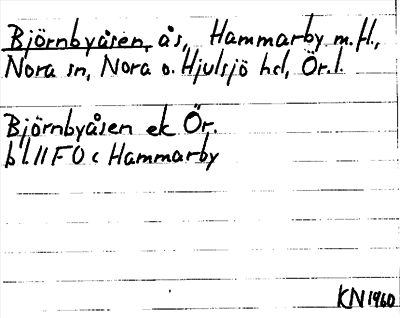 Björnbyåsen, ås, Hammarby m.fl.,
Nora sn, Nora o. Hjulsjö hd, Ör.l.
Björnbyåsen ek Ör.
bl 11F 0c Hammarby
KN 1960